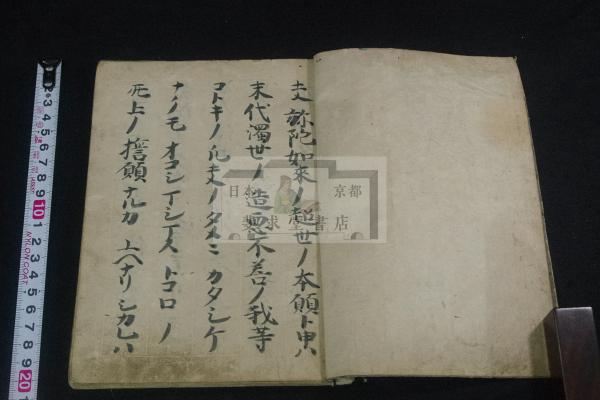 夫弥陀如来ノ超世ノ本願ト申ハ
末代濁世ノ造悪不善ノ我等
コトキノ凡夫ノタメニカタシケ
ナクモオコシマシマストコロノ
无上ノ誓願ナルカユヘナリシカレハ
日本 京都
求堂書店
2 3 4 5 6 7 8 9 10 1 2 3 4 5 6 7 8 9 20
NYLON COAT